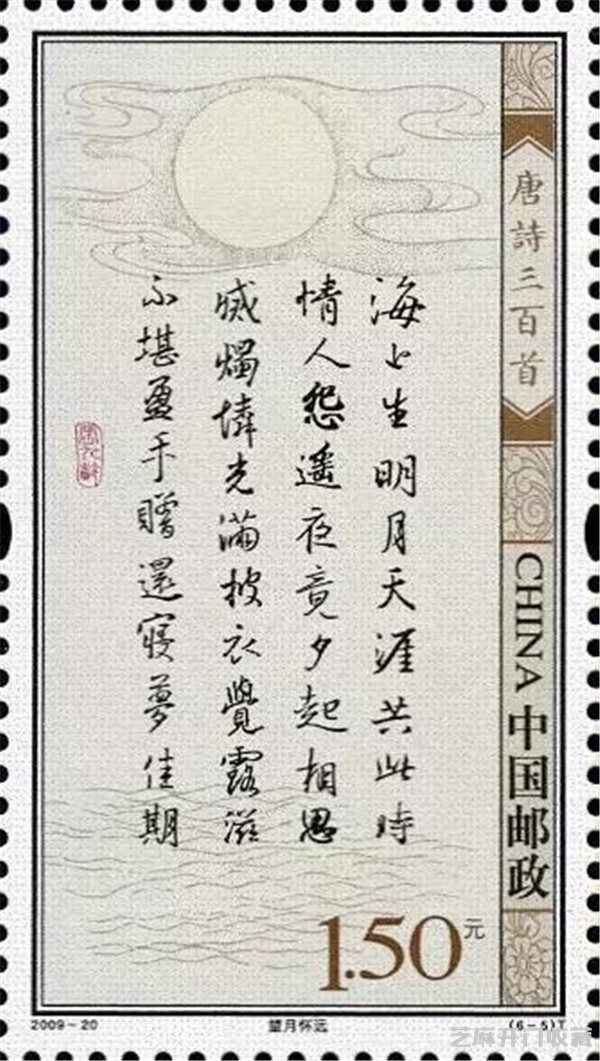 唐詩三百首
CHINA 中国邮政
海上生明月天涯共此時
情人怨遥夜竟夕起相思
滅燭憐光滿披衣覺露滋
不堪盈手贈還寢夢佳期
張九齡
1.50元
2009-20
望月怀远
(6-5)T
芝麻开门收藏